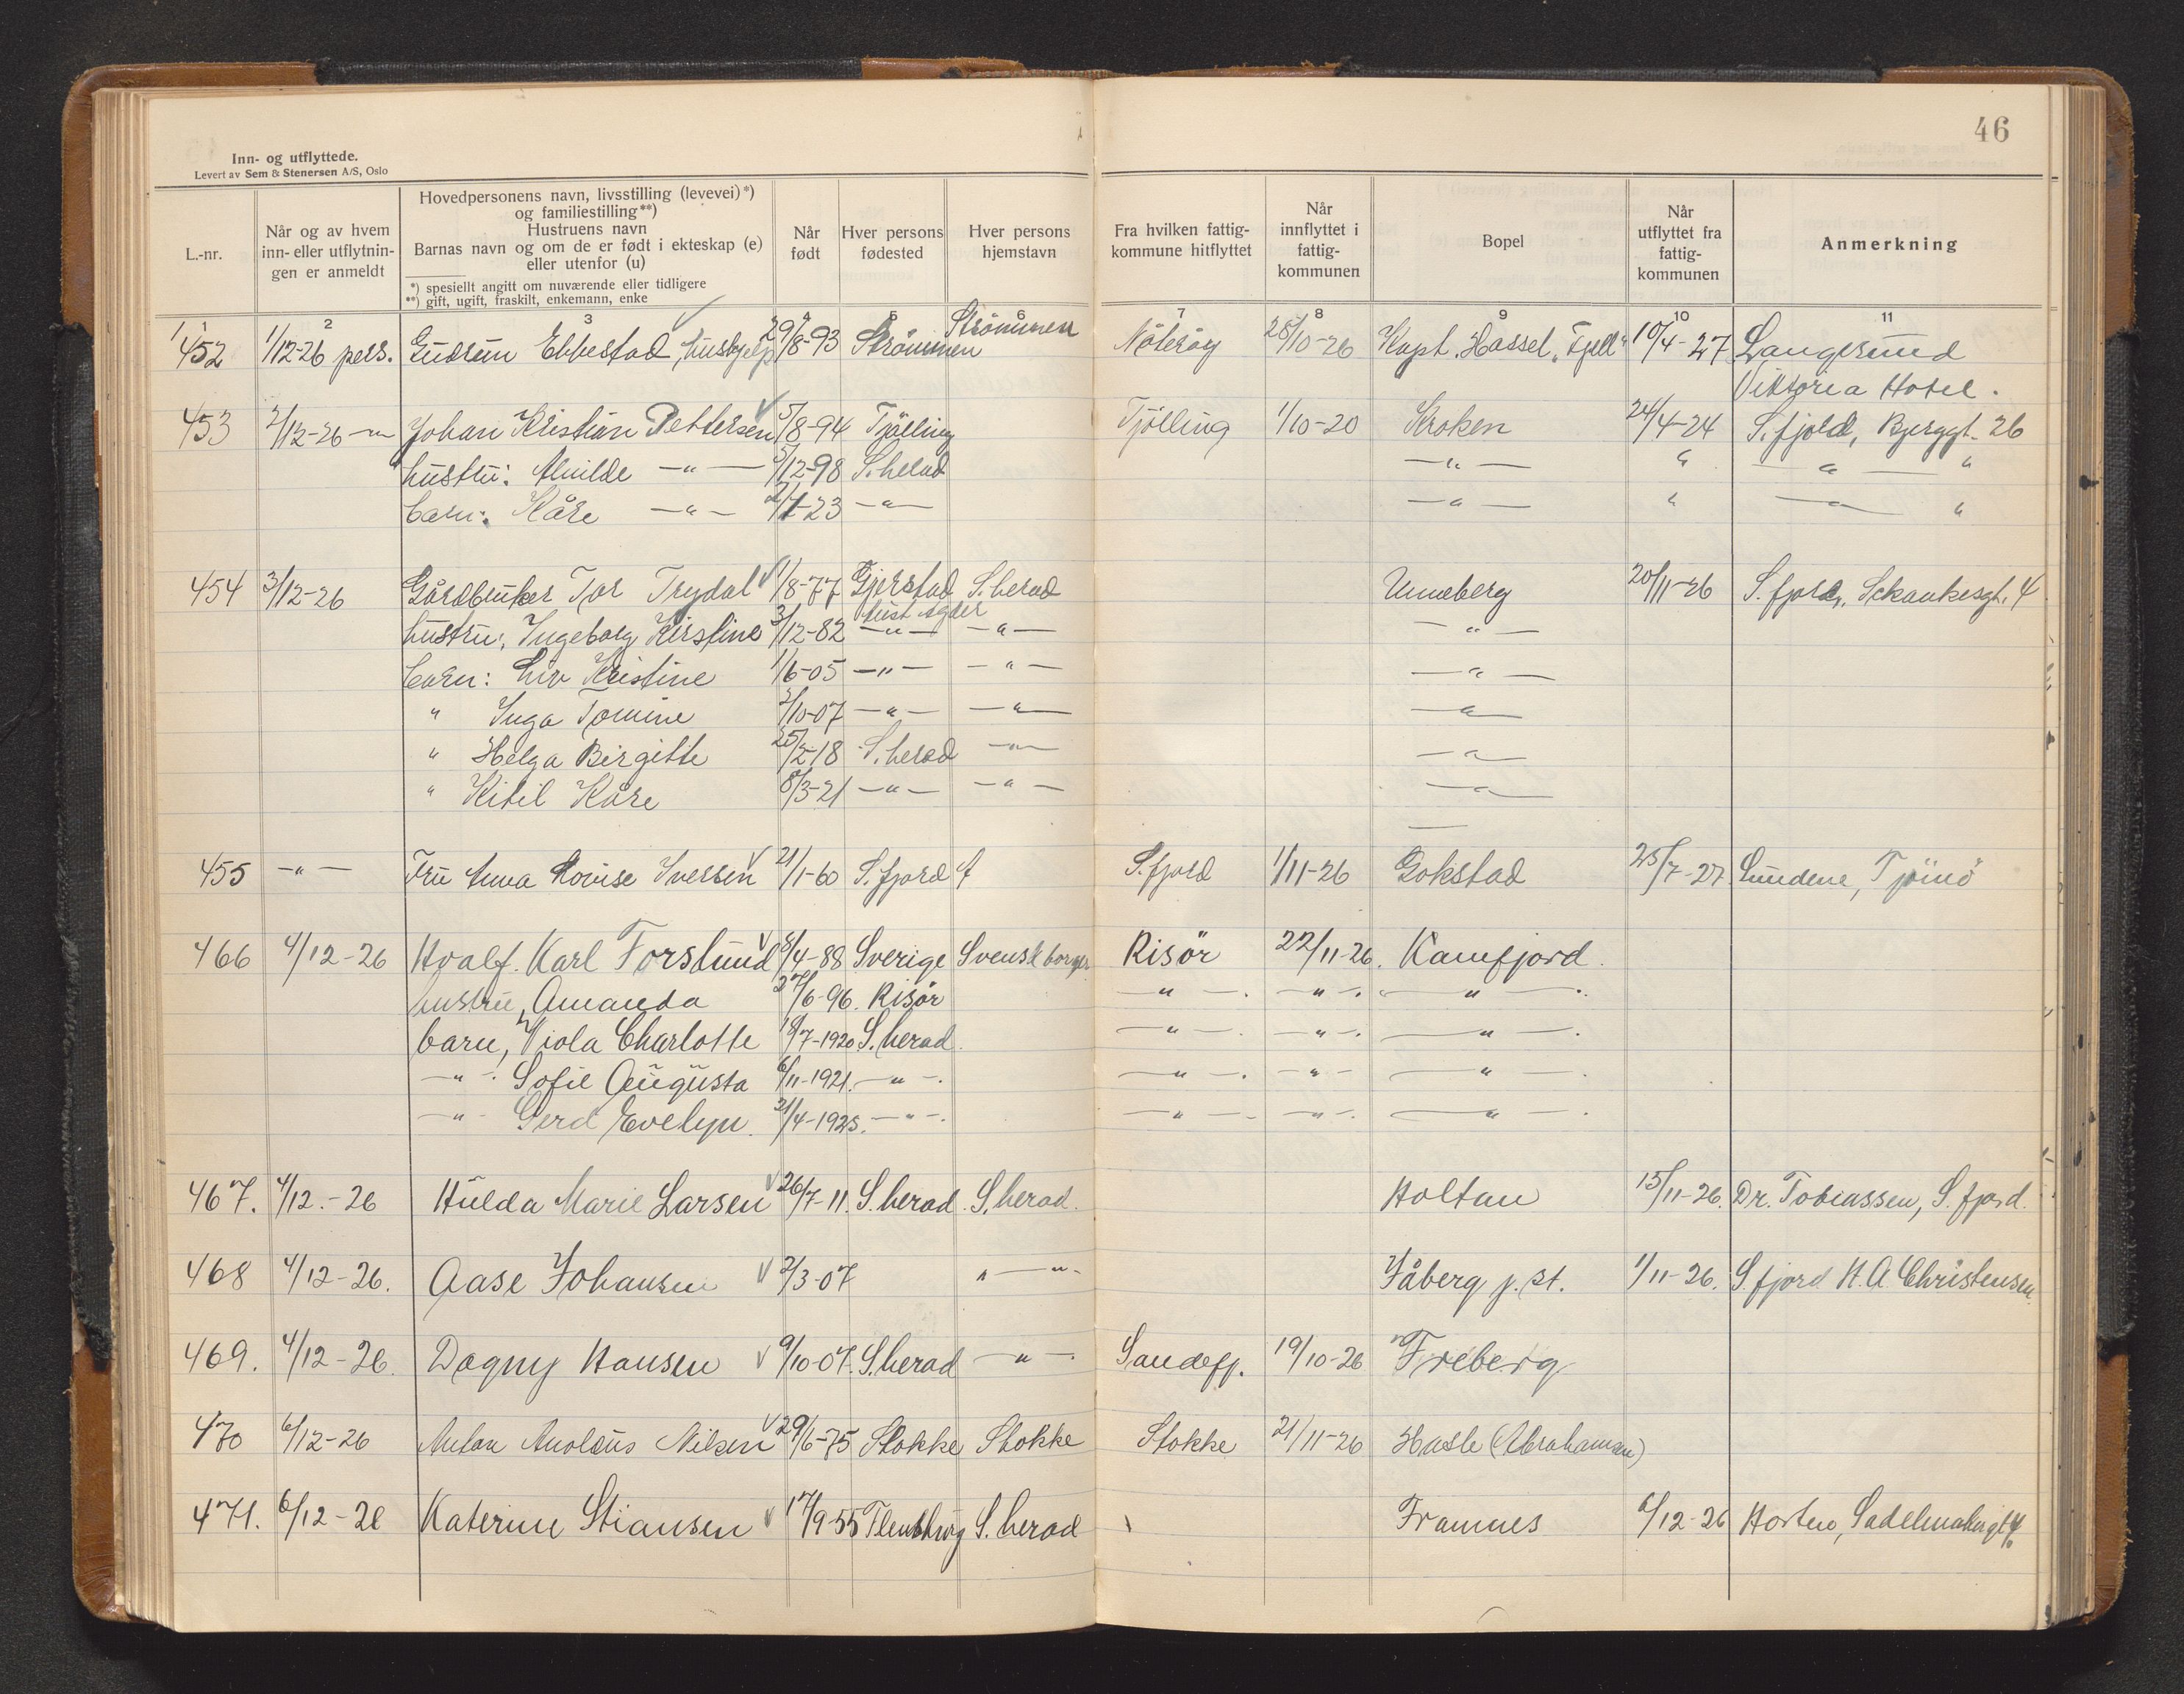 46
Inn- og utflyttede.
Levert av Sem & Stenersen A/S, Oslo
L.-nr.
Når og av hvem inn- eller utflytnin- gen er anmeldt
Hovedpersonens navn, livsstilling (levevei)*)
og familiestilling**)
Hustruens navn
Barnas navn og om de er født i ekteskap (e)
eller utenfor (u)
*) spesiellt angitt om nuværende eller tidligere
**) gift, ugift, fraskilt, enkemann, enke
Når født
Hver persons fødested
Hver persons hjemstavn
Fra hvilken fattig- kommune hitflyttet
Når innflyttet i fattig- kommunen
Bopel
Når utflyttet fra fattig- kommunen
Anmerkning
1 2 3 4 5 6 7 8 9 10 11
452 1/12-26 pers. Gudrun Ebbestad, hushjelp 29/8-93 Strömmen Strömmen Nöteröy 28/10-26 Kapt. Hassel, "Fjell" 10/4-27 Langesund
Viktoria Hotel.
453 2/12-26 -"- Johan Kristian Pettersen 5/8-94 Tjölling Tjölling 1/10-20 Kroken 24/4-24 S.fjord, Bjerggt. 26
hustru: Alvilde -"- 5/12-98 S.herad -"- " -"- "
barn: Kåre -"- 2/1-23 -"- -"- " -"- "
454 3/12-26 Gårdbruker Tor Trydal 1/8-77 Gjerstad S.herad Unneberg 20/11-26 S.fjord, Schankesgt. 4
Aust Agder
hustru: Ingeborg Kirstine 3/12-82 -"- -"- -"-
barn: Liv Kristine 1/6-05 -"- -"- -"-
" Inga Tomine 7/10-07 -"- -"- -"-
" Helga Birgitte 25/2-18 S.herad -"- -"-
" Kitil Kåre 8/3-21 -"- -"- -"-
455 -"- Fru Anna Lovise Iversen 21/1-60 S.fjord S.fjord 1/11-26 Gokstad 25/7-27 Lundene, Tjömö
466 4/12-26 Hvalf. Karl Forslund 8/4-88 Sverige Svensk borger Risör 22/11-26. Kamfjord.
hustru, Amanda 27/6-96. Risör -"-. -"-. -"-.
barn, Viola Charlotte 18/7-1920 S.herad. -"-. -"-. -"-.
-"-. Sofie Augusta 6/11-1921. -"-. -"-. -"- -"-.
-"- Gerd Evelyn. 21/4-1925. -"-. -"- -"-. -"-.
467. 4/12.-26 Hulda Marie Larsen 26/7-11. S.herad. S.herad. Holtan 15/11-26. Dr. Tobiassen, S.fjord.
468 4/12-26. Aase Johansen 2/3-07 -"- Jåberg j.st. 1/11-26. S.fjord H.A. Christensen.
469. 4/12-26. Dagny Hansen 9/10-07. S.herad -"-. Sandefj. 19/10-26 Freberg
470 6/12-26 Anton Anoleus Nilsen 29/6-75 Stokke Stokke Stokke 21/11-26 Hasle (Abrahamsen)
471. 6/12-26 Katerine Stiansen 17/9-55 Flensburg S.herad Framnes 6/12-26 Horten, Sadelmakergt. 4.